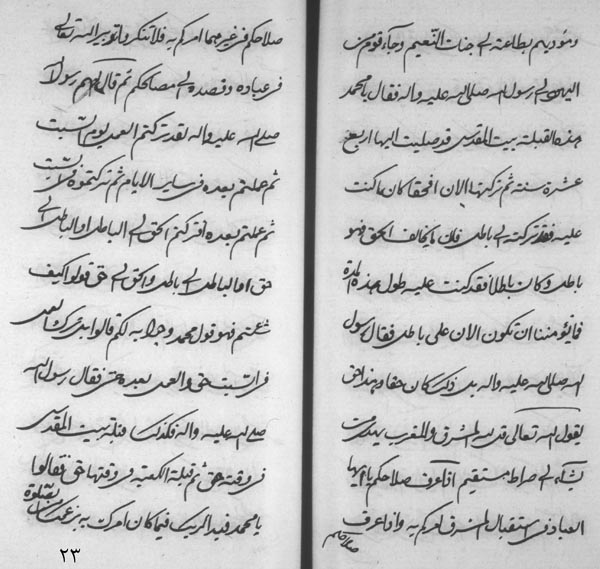 ومؤديهم بطاعته الى جنات النعيم وجاء قوم من
اليهود الى رسول الله صلى الله عليه واله فقال يا محمد
هذه القبلة بيت المقدس قد صليت اليها اربع
عشرة سنة ثم تركتها الان افحقا كان ما كنت
عليه فقد تركته الى باطل فان ما يخالف الحق فهو
باطل وكان باطلا فقد كنت عليه طول هذه المدة
فما يؤمننا ان تكون الان على باطل فقال رسول
الله صلى الله عليه واله بل ذلك كان حقا وهذا حق
يقول الله تعالى قل لله المشرق والمغرب يهدى من
يشاء الى صراط مستقيم اذا عرف صلاحكم يا ايها
العباد فى استقبال المشرق امركم به واذا عرف
صلاحكم
صلاحكم فى غيرهما امركم به فلا تنكروا تدبير الله تعالى
فى عباده وقصده الى مصالحكم ثم قال لهم رسول الله
صلى الله عليه واله لقد تركتم العمل يوم السبت
ثم عملتم بعده فى ساير الايام ثم تركتموه فى السبت
ثم عملتم بعده افتركتم الحق الى الباطل او الباطل الى
حق او الباطل الى باطل والحق الى حق قولوا كيف
شئتم فهو قول محمد وجوابه لكم قالوا بل ترك العمل
فى السبت حق والعمل بعده حق فقال رسول الله
صلى الله عليه واله فكذلك قبلة بيت المقدس
فى وقته حق ثم قبلة الكعبة فى وقتها حق فقالوا
يا محمد فبدا لربك فيما كان امرك به بزعمك من الصلوة
٢٣